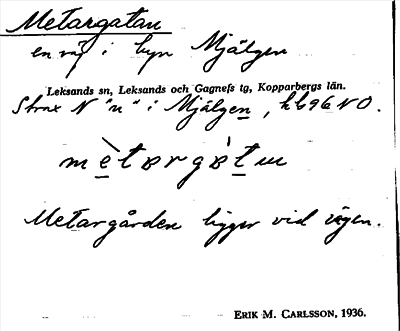 Metargatan
en väg i byn Mjälgen
Leksands sn, Leksands och Gagnefs tg, Kopparbergs län.
Strax N "n" i Mjälgen, hb96NO.
mètargàtun
Metargården ligger vid vägen.
ERIK M. CARLSSON, 1936.